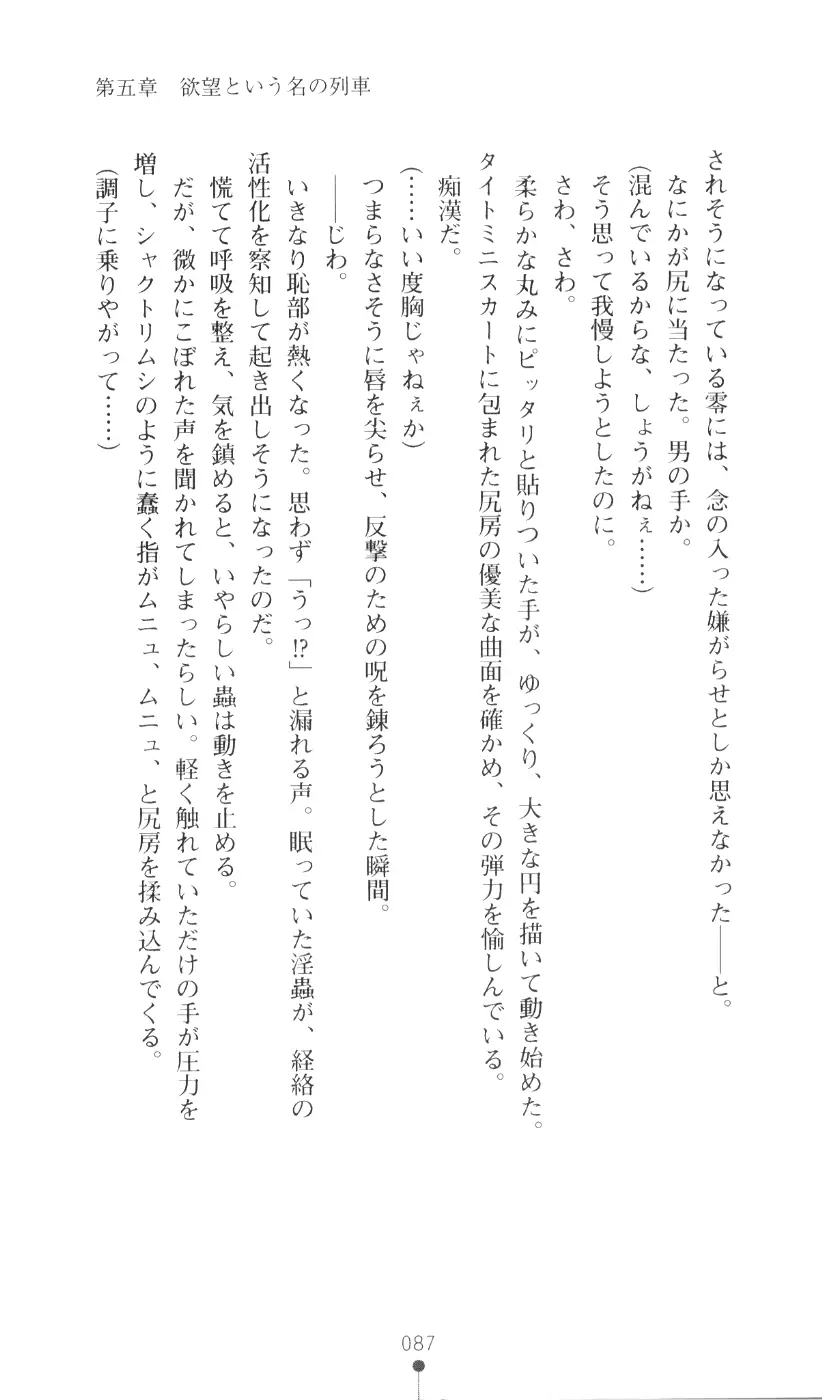 第五章　欲望という名の列車
されそうになっている零には、念の入った嫌がらせとしか思えなかった――と。
なにかが尻に当たった。男の手か。
（混んでいるからな、しょうがねぇ……）
そう思って我慢しようとしたのに。
さわ、さわ。
柔らかな丸みにピッタリと貼りついた手が、ゆっくり、大きな円を描いて動き始めた。
タイトミニスカートに包まれた尻房の優美な曲面を確かめ、その弾力を愉しんでいる。
痴漢だ。
（……いい度胸じゃねぇか）
つまらなさそうに唇を尖らせ、反撃のための呪を錬ろうとした瞬間。
――じわ。
いきなり恥部が熱くなった。思わず「うっ!?」と漏れる声。眠っていた淫蟲が、経絡の
活性化を察知して起き出しそうになったのだ。
慌てて呼吸を整え、気を鎮めると、いやらしい蟲は動きを止める。
だが、微かにこぼれた声を聞かれてしまったらしい。軽く触れていただけの手が圧力を
増し、シャクトリムシのように蠢く指がムニュ、ムニュ、と尻房を揉み込んでくる。
（調子に乗りやがって……）
087